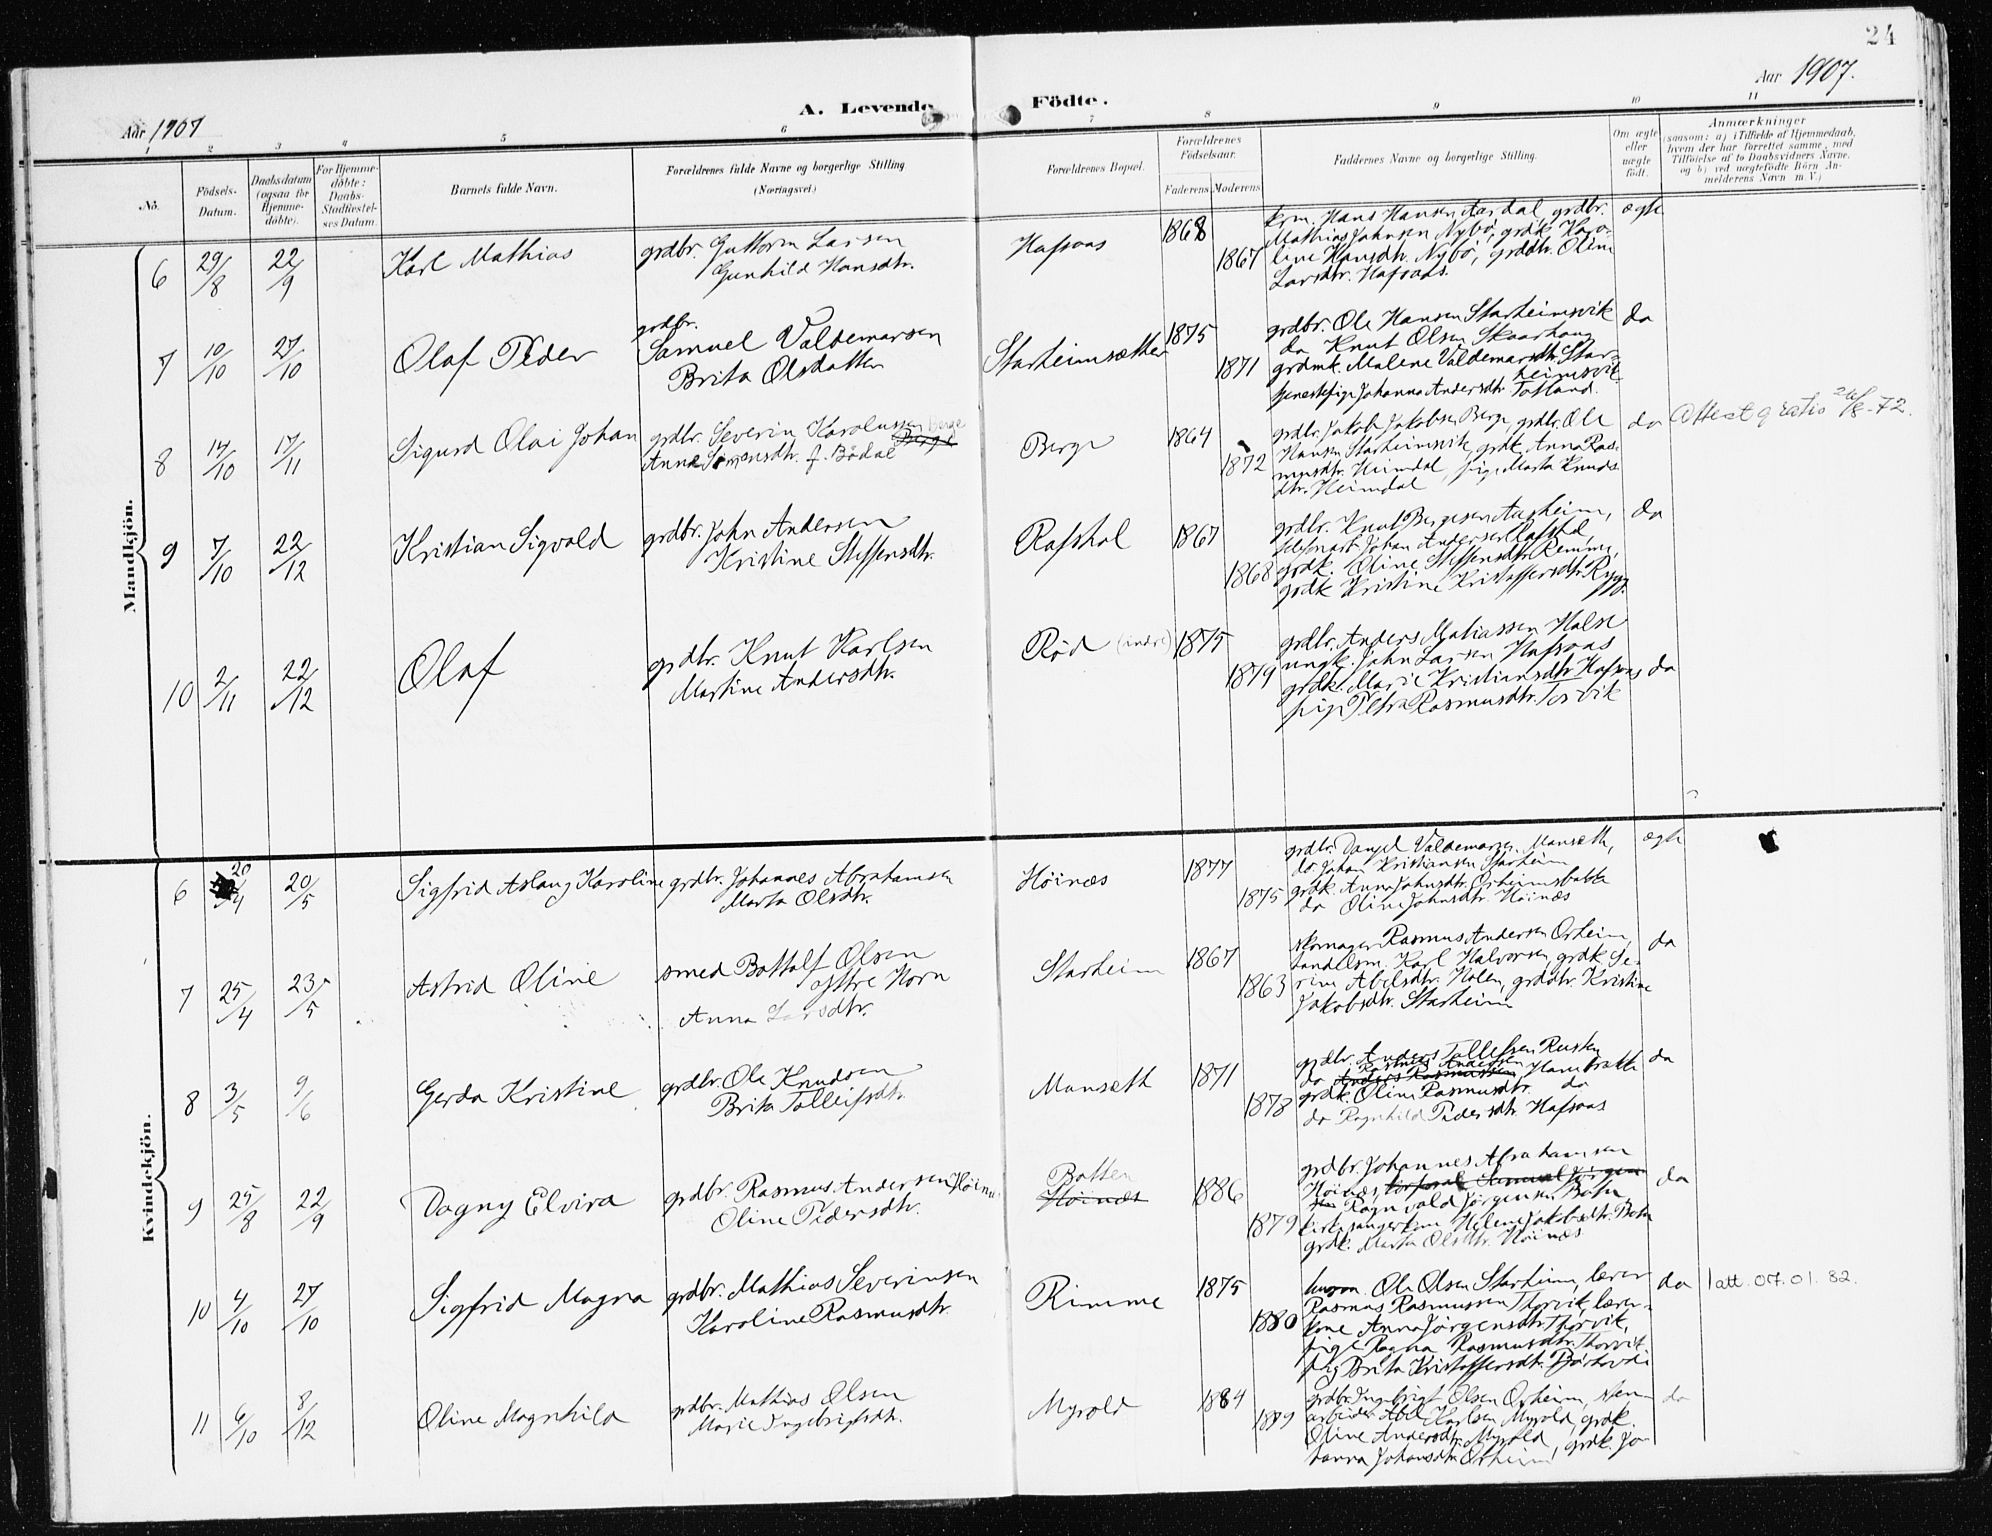 24
Aar 1907.
A. Levende Födte.
Aar 1907
1 2 3 4 5 6 7 8 9 10 11
Nô.
Födsels-
Datum.
Daabsdatum
(ogsaa for
Hjemme-
døbte).
For Hjemme-
døbte:
Daabs-
Stadfæstel-
ses Datum.
Barnets fulde Navn.
Forældrenes fulde Navne og borgerlige Stilling
(Næringsvei.)
Forældrenes Bopæl.
Forældrenes
Födselsaar.
Faderens
Moderens
Faddernes Navne og borgerlige Stilling.
Om ægte
eller
uægte
født.
Anmærkninger
(saasom: a) i Tilfælde af Hjemmedaab,
hvem der har forrettet samme, med
Tilföielse af to Daabsvidners Navne.
og b) ved uægtefödte Börn An-
melderens Navn m. V.)
Mandkjön.
6 29/8 22/9 Karl Mathias
grdbr. Guttorm Larsen
Gunhild Hansdtr.
Hafsaas 1868 1867
kom. Hans Hansen Aardal, grdbr.
Mathias Johnsen Nybø, grdk. Karo-
line Hansdtr. Nybø, grddtr. Oline
Larsdtr. Hafsaas.
ægte
7 10/10 27/10 Olaf Peder
grdbr.
Samuel Valdemarsen
Brita Olsdatter
Starheimsæther 1875 1871
grdbr. Ole Hansen Starheimsvik
do Knut Olsen Skaarhaug
grdmk. Malene Valdemarsdtr. Star-
heimsvik
tjenestepige Johanna Andersdtr. Totland.
do
8 14/10 17/11 Sigurd Olai Johan
grdbr. Severin Karolussen Berge
Anna Simonsdtr. f. Bødal Berge
Berge 1864 1872
grdbr. Jakob Jakobsen Berge, grdbr. Ole
Hansen Starheimsvik, grdk. Anna Ras-
musdtr. Heimdal, pige Marta Knuds-
dtr. Heimdal
do Attest gratis 24/8-72.
9 7/10 22/12 Kristian Sigvald
grdbr. John Andersen
Kristine Steffensdtr.
Rafshol 1867 1868
grdbr. Knut Bergesen Aarheim,
Johan Andersen Rafshol,
grdk. Oline Steffensdtr. Remme,
grdk Kristine Kristoffersdtr. Rygg.
do
10 2/11 22/12 Olaf
grdbr. Knut Karlsen
Martine Andersdtr.
Rød (indre) 1875 1879
grdbr. Anders Matiassen Halse
ungk. John Larsen Hafsaas
grdk. Marie Kristiansdtr. Hafsaas
pige Petra Rasmusdtr. Torvik
do
Kvindekjön.
6 20/4 20/5 Sigfrid Aslaug Karoline
grdbr. Johannes Abrahamsen
Marta Olsdtr.
Høinæs 1877 1875
grdbr. Danjel Valdemarsen Manseth,
do Johan Kristiansen Starheim
grdk. Anna Johnsdtr. Orheimsbakke
do Oline Johnsdtr. Høinæs
ægte
7 25/4 23/5 Astrid Oline
smed Bottolf Olsen
ytre Horn
Anna Larsdtr.
Starheim 1867 1863
skomager Rasmus Andersen Orheim,
landhsm. Karl Halvorsen, grdk. Se-
rine Abelsdtr. Holen, grddtr. Kristine
Jakobsdtr. Starheim
do
8 3/5 9/6 Gerda Kristine
grdbr. Ole Knudsen
Brita Tolleifsdtr.
Manseth 1871 1878
grdbr. Anders Tollefsen Rusten
Rasmus Andersen
do Anders Rasmussen Hanebrække
grdk. Oline Rasmusdtr. do
do Ragnhild Pedersdtr. Hafsaas
do
9 25/8 22/9 Dagny Elvira
grdbr. Rasmus Andersen Høinæs
Oline Pedersdtr.
Botten
Høinæs
1886 1879
grdbr. Johannes Abrahamsen
Høinæs, korporal Samuel Jørgen-
sen Ragnvald Jørgensen Botn,
kirkesangerkone Helene Jakobsdtr. Botn
grdk. Marta Olsdtr. Høinæs
do
10 4/10 27/10 Sigfrid Magna
grdbr. Mathias Severinsen
Karoline Rasmusdtr.
Rimme 1875 1880
Ole Olsen Starheim, lærer
Rasmus Rasmussen Thorvik, lærer-
kone Anna Jørgensdtr. Thorvik,
pige Ragna Rasmusdtr. Thorvik
pig Brita Kristoffersdtr.
do 1 att. 07.01.82.
11 6/10 8/12 Oline Magnhild
grdbr. Mathias Olsen
Marie Ingebrigtsdtr.
Myrold 1884 1879
grdbr. Ingebrigt Olsen Orheim, sten-
arbeider Abel Karlsen Myrold, grdk.
Oline Andersdtr. Myrold, grdk. Jo-
hanna Johansdtr. Orheim
do